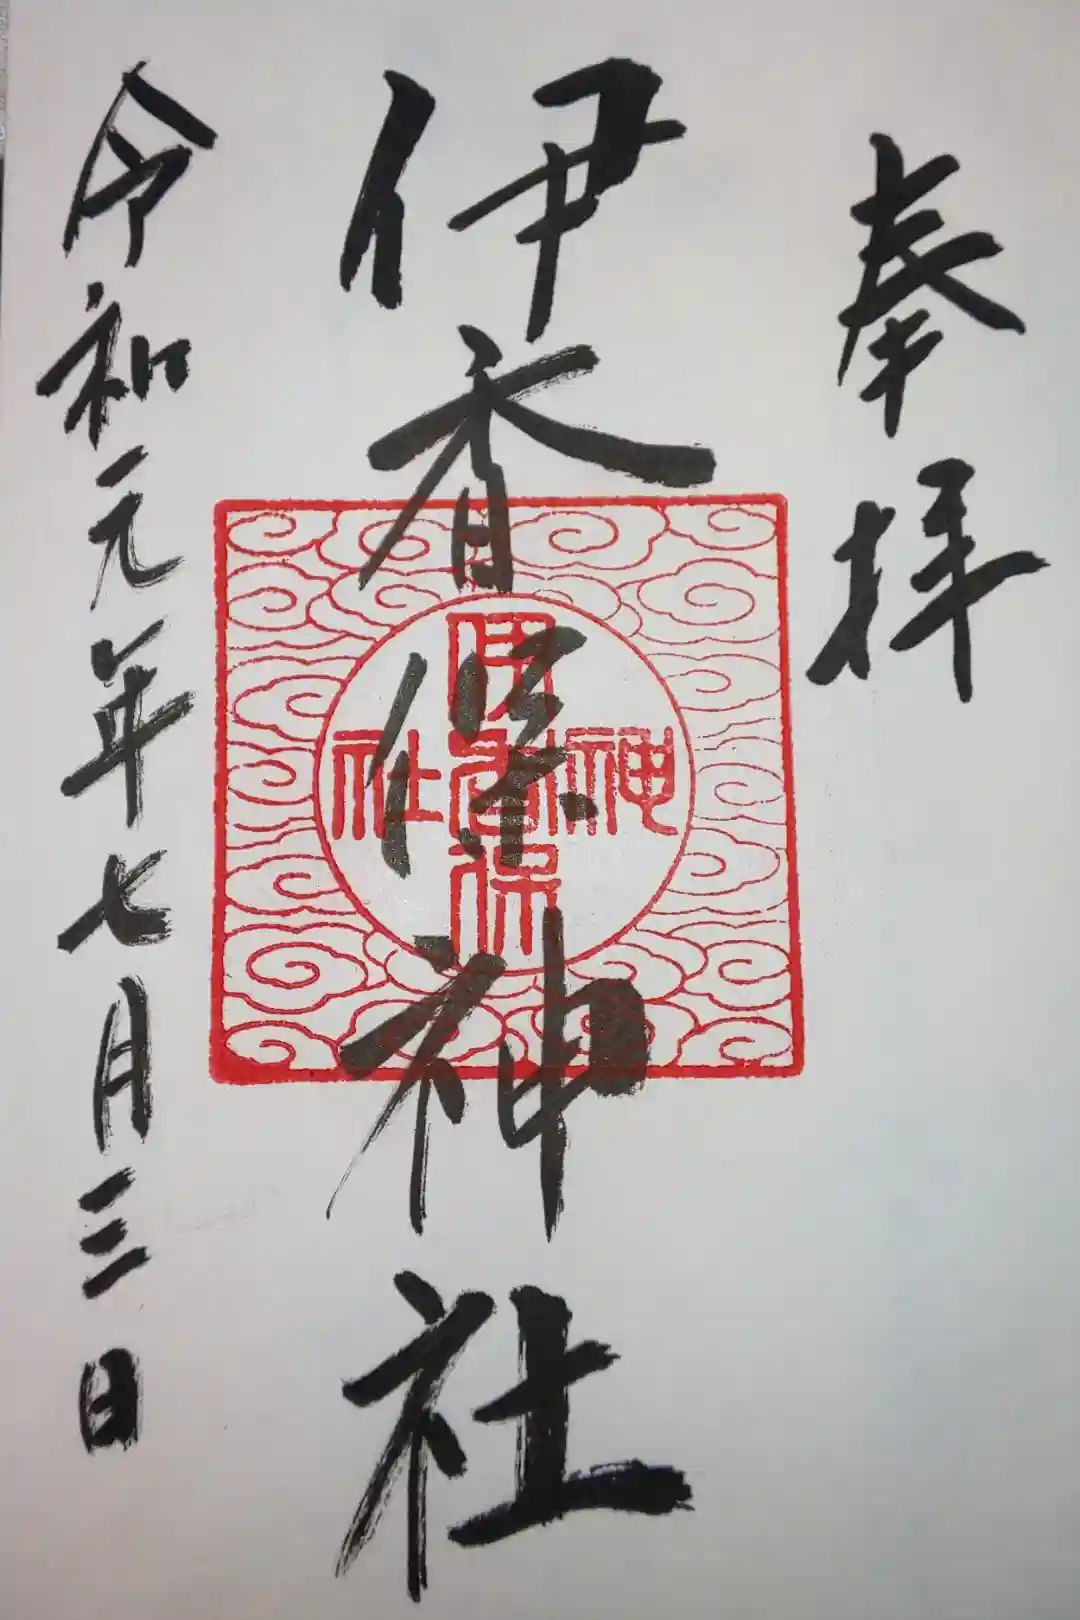 奉拝
伊香保神社
令和元年七月三日
伊香保
神社